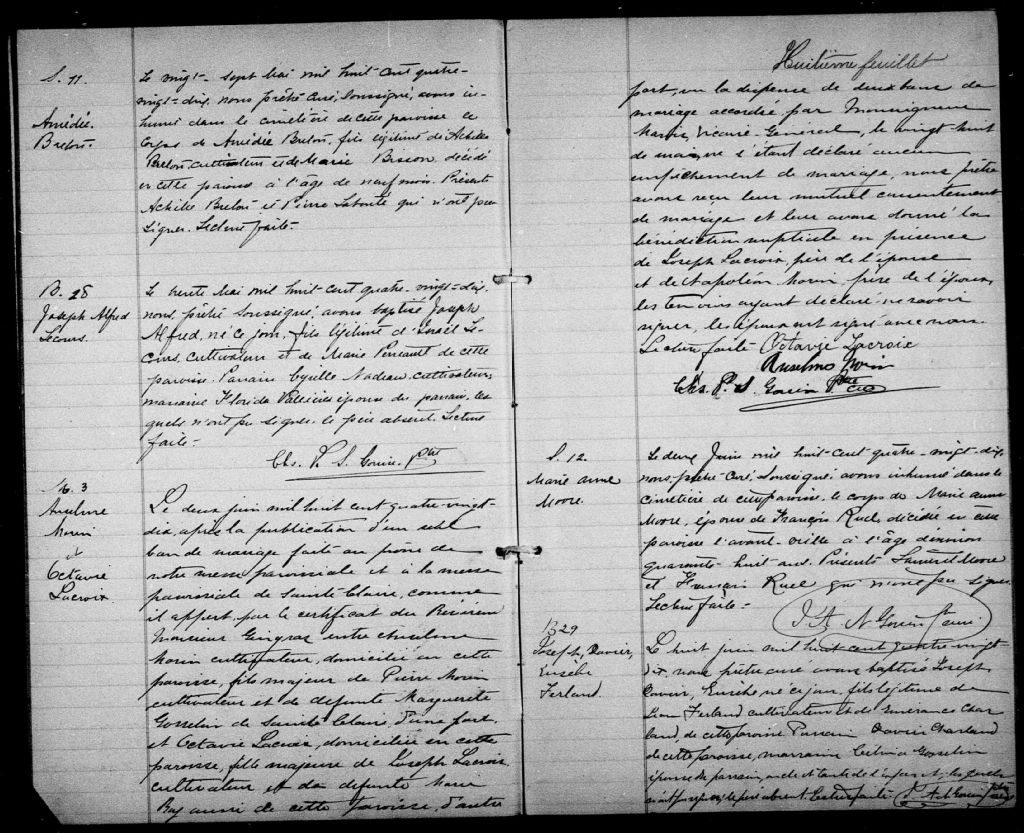 S. 11.
Amédée.
Breton.
Le vingt-sept Mai mil huit-cent quatre-
vingt-dix, nous prêtre curé, soussigné, avons in-
humé dans le cimetière de cette paroisse le
corps de Amédée Breton, fils légitime de Achille
Breton cultivateur et de Marie Bisson, décédé
en cette paroisse à l'âge de neuf mois. Présents
Achille Breton et Pierre qui n'ont pu
signer. Lecture faite.
B. 28
Joseph Alfred
Lecours.
Le trente Mai mil huit-cent quatre-vingt-dix,
nous, prêtre soussigné, avons baptisé Joseph
Alfred, né ce jour, fils légitime d'Israël Le-
cours, cultivateur et de Marie Perreault de cette
paroisse. Parrain Cyrille Nadeau, cultivateur,
marraine Florida Vallières épouse du parrain, les
quels n'ont pu signer. le père absent. Lecture
faite.
Chs. P. S. Gouin. Ptre
M. 3
Anselme
Morin
et
Octavie
Lacroix.
Le deux juin mil huit cent quatre-vingt-
dix, après la publication d'un seul
ban de mariage faite au prône de
notre messe paroissiale et à la messe
paroissiale de Sainte Claire, comme
il appert par le certificat du Révérend
Monsieur Gingras entre Anselme
Morin cultivateur, domicilié en cette
paroisse, fils majeur de Pierre Morin
cultivateur et de défunte Marguerite
Gosselin de Sainte Claire, d'une part,
et Octavie Lacroix, domiciliée en cette
paroisse, fille majeure de Joseph Lacroix
cultivateur et de défunte Marie
Roy aussi de cette paroisse, d'autre
Huitième feuillet
part, vu la dispense de deux bans de
mariage accordée par Monseigneur
Marois, Vicaire-Général, le vingt-huit
de mai, ne s'étant déclaré aucun
empêchement de mariage, nous prêtre
avons reçu leur mutuel consentement
de mariage et leur avons donné la
bénédiction nuptiale en présence
de Joseph Lacroix, père de l'épouse
et de Napoléon Morin, frère de l'époux,
les témoins ayant déclaré ne savoir
signer, les époux ont signé avec nous.
Lecture faite Octavie Lacroix
Anselme Morin
Chs. P. S. Gouin Ptre
S. 12.
Marie anne
Moore.
Le deux Juin mil huit-cent quatre-vingt-dix,
nous, prêtre Curé, soussigné, avons inhumé dans le
cimetière de cette paroisse, le corps de Marie anne
Moore, épouse de François Ruel, décédée en cette
paroisse l'avant-veille à l'âge d'environ
quarante-huit ans. Présents Samuel Moore
et François Ruel qui n'ont pu signer.
Lecture faite.
J. A. N Gouin Ptre curé.
B 29
Joseph, Xavier,
Eusèbe
Ferland.
Le huit juin mil huit cent quatre vingt
dix. nous prêtre curé avons baptisé Joseph
Xavier, Eusèbe né ce jour, fils légitime de
Léon Ferland cultivateur et de Emérance Char
land, de cette paroisse Parrain Xavier Charland
de cette paroisse, marraine Célina Gosselin
épouse du parrain, oncle et tante de l'enfant, les quels
n'ont pu signer, le père absent. Lecture faite J. A. N Gouin Ptre